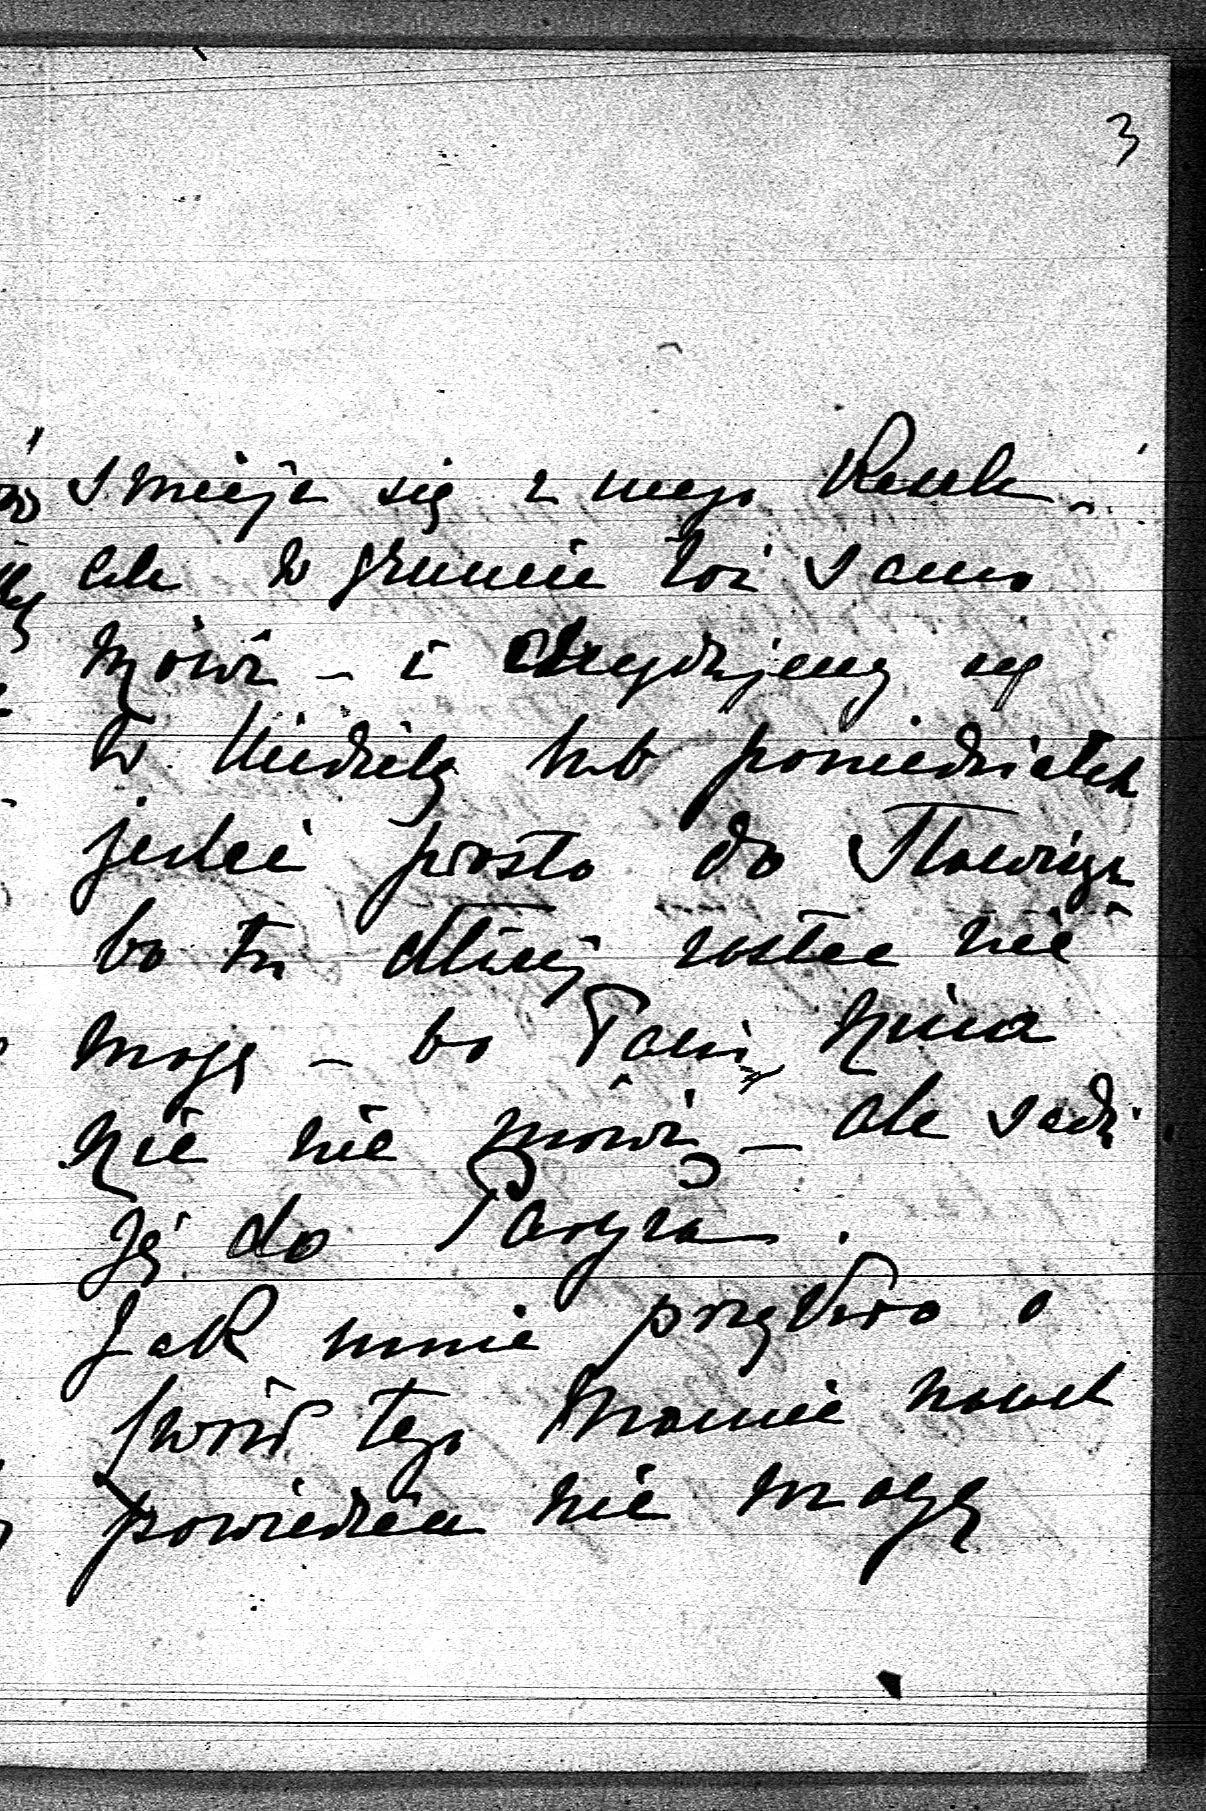 3
smieje się z mego
ale w gruncie toż samo
mówi – i się
w Niedzielę lub poniedziałek
jedzie prosto do
bo tu dłużej zostać nie
mogę – bo Pani Nina
nic nie mówi – ale sadzi
ją do Paryża.
Jak mnie przykro o
prócz tego Mamie nawet
powiedzieć nie mogę